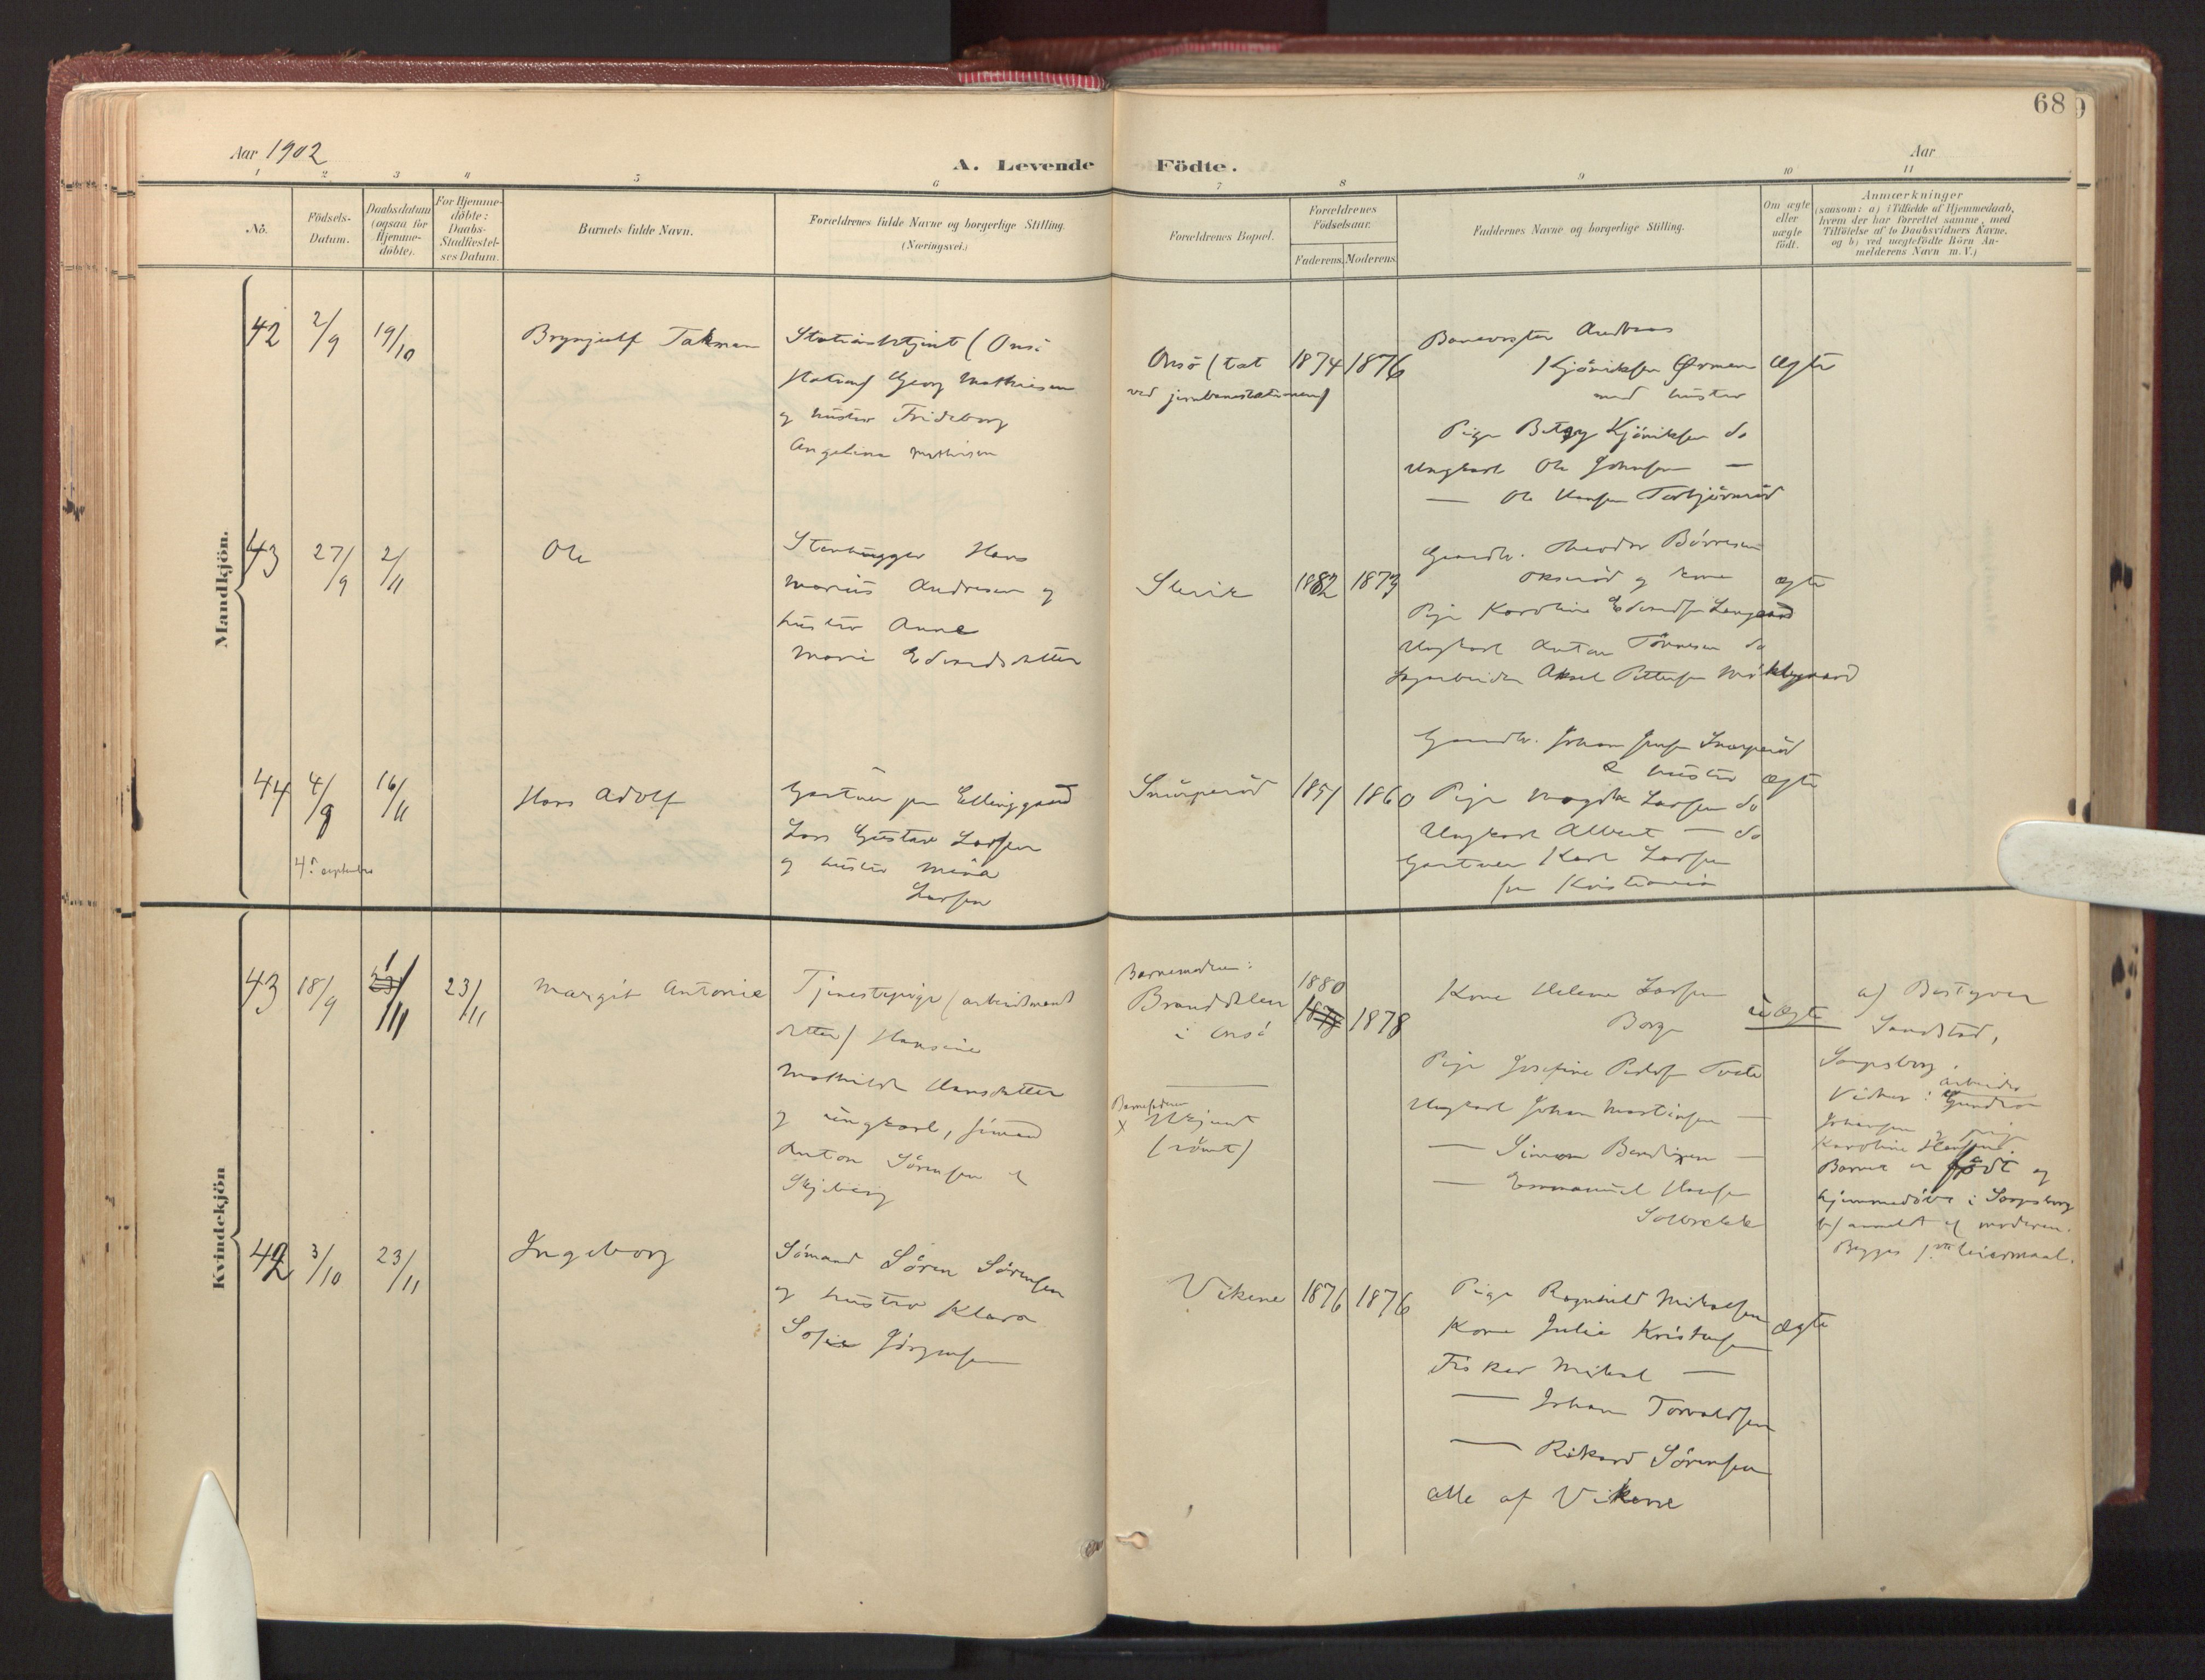 68
Aar 1902
A. Levende Födte.
Aar
1 2 3 4 5 6 7 8 9 10 11
No.
Födsels-
Datum.
Daabsdatum
(ogsaa for
Hjemme-
döbte).
For Hjemme-
döbte:
Daabs-
Stadfæstel-
ses Datum.
Barnets fulde Navn.
Forældrenes fulde Navne og borgerlige Stilling
(Næringsvei.)
Forældrenes Bopæl.
Forældrenes
Födselsaar.
Faderens. Moderens.
Faddernes Navne og borgerlige Stilling.
Om ægte
eller
uægte
födt.
Anmærkninger
(saasom: a) i Tilfælde af Hjemmedaab,
hvem der har forrettet samme, med
Tilföielse af to Daabsvidners Navne.
og b) ved uægtefödte Börn An-
melderens Navn m. V.)
Mandkjön.
42
2/9
19/10
Brynjulf Takman
Stationsbetjent (Onsö
station) Georg Mathisen
og hustru Frideborg
Angelina Mathisen
Onsö (tæt
ved jernbanestationen)
1874 1876
Andreas
Kjöniksen Ørmen
med hustru
Pige Betzy Kjöniksen do
Ungkarl Ole Johnsen —
— Ole Hansen Torbjörnröd
Ægte
43
27/9
2/11
Ole
Stenhugger Hans
Marius Andresen og
hustru Anne
Marie Edvardsdatter
Slevik
1882 1873
Gaardbr. Theodor Börresen
Oksröd og kone
Pige Karoline Edvardsen Langaard
Ungkarl Anton Tönnesen do
Aksel Pettersen
ægte
44
4/9
4. september
16/11
Hans Adolf
Gartner paa Ellinggaard
Lars Gustav Larsen
og hustru Mina
Larsen
Snörperöd
1851 1860
Gaardbr. Johan Jensen Snörperöd
& hustru
Pige Magda Larsen do
Ungkarl Albert — do
Gartner Karl Larsen
fra Kristiania
Ægte
Kvindekjön
43
18/9
1/11
23/11
Margit Antonie
Tjenestepige (arbeidsmands
datter) Hansine
Mathilde Hansdatter
og ungkarl, sömand
Anton Sörensen af
Skjeberg
Barnemoderen:
Brandsklev
i Onsö
Barnefaderen
x Ukjendt
(römt)
1880
1878
Kone Helene Larsen
Borge
Pige Josefine Tvete
Ungkarl Johan Martinsen —
— Simon Bendixen —
— Emmanuel Hansen
Solbrekke
uægte
a) Bestyrer
Sandstad,
Sarpsborg.
Vidner: arbeider
Gundro
Johansen og pige
Karoline Hansen.
Barnet er född og
hjemmedöbt i Sarpsborg
b) anmeldt af moderen.
Begges 1ste leiermaal.
42
3/10
23/11
Ingeborg
Sömand Sören Sörensen
og hustru Klara
Sofie Jörgensen
Vikene
1876 1876
Pige Ragnhild Mikalsen
Kone Julie Kristensen
Fisker Mikal —
— Johan Torvaldsen
— Rikard Sörensen
alle af Vikene
Ægte